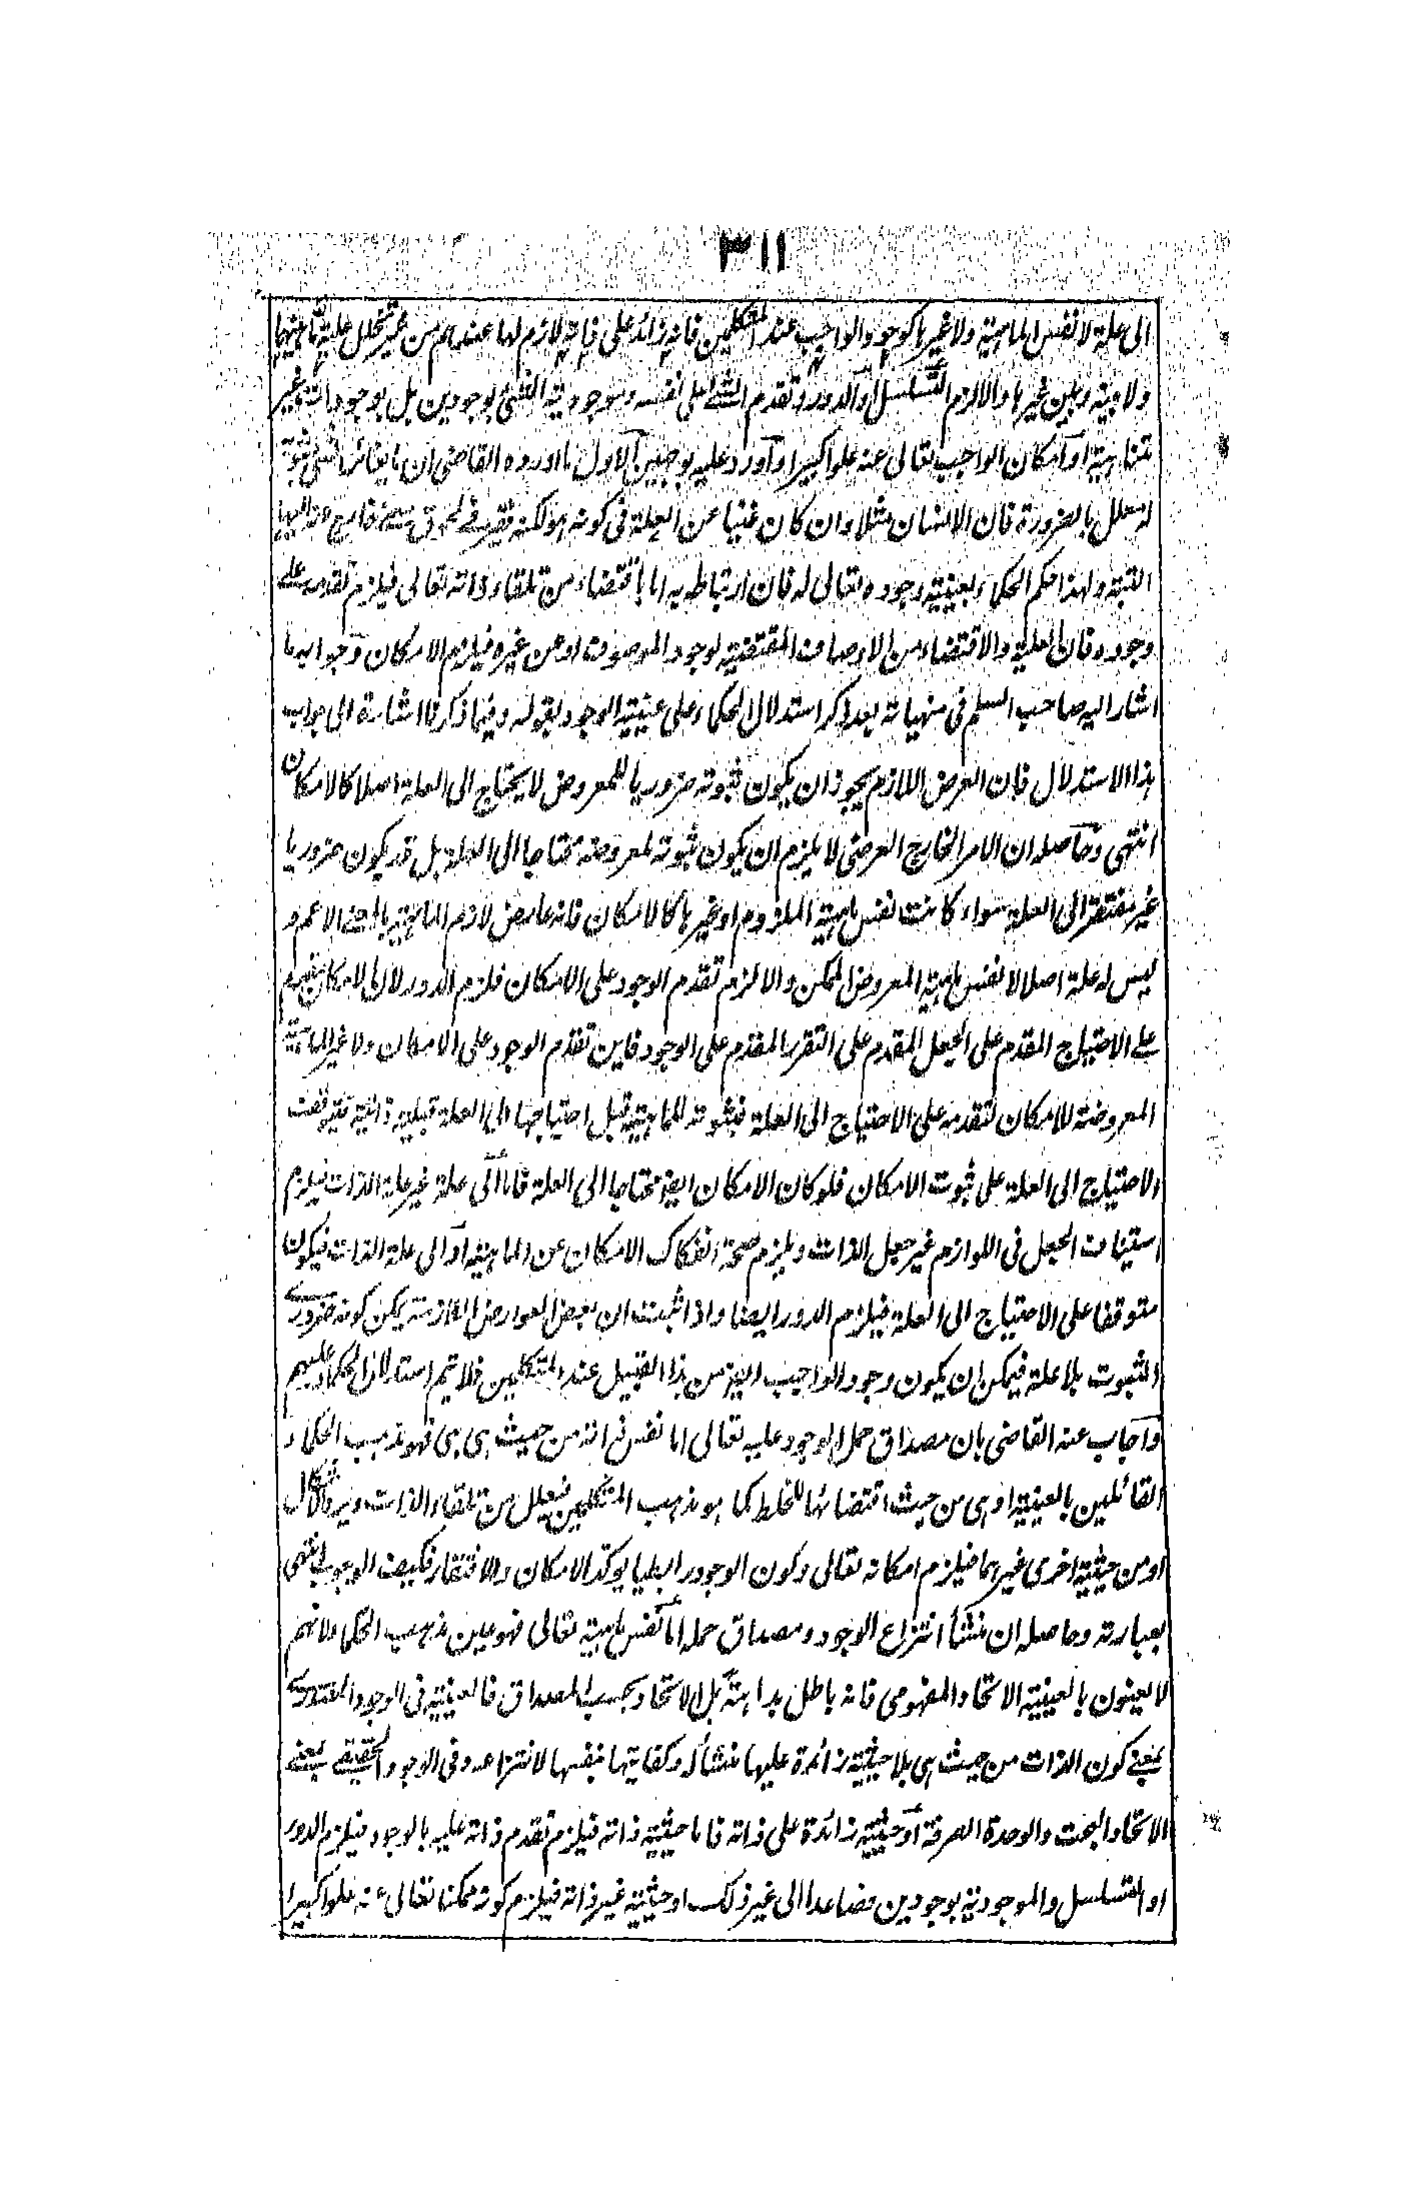 ٣١١
الى علة لا نفس الماهية ولا غيرها كوجود الواجب عند المتكلمين فانه زائد على ذاته لازم لها عندهم من غير تخلل علية ماهيتها
ولا بينه وبين غيرها والا لزم التسلسل او الدور وتقدم الشئ على نفسه وموجودية الشئ بوجودين بل بوجودات غير
متناهية او امكان الواجب تعالى عنه علوا كبيرا واورد عليه بوجهين الاول ما اورده القاضى ان ما يغائر الشئ ثبوته
له معلل بالضرورة فان الانسان مثلا وان كان غنيا عن العلة فى كونه هو لكنه فقير فى لحوق معنى خارج عنه اليها
البتة ولهذا حكم الحكماء بعينية وجوده تعالى له فان ارتباطه به اما باقتضاء من تلقاء ذاته تعالى فيلزم تقدمه على
وجوده فان العلية والاقتضاء من الاوصاف المقتضية لوجود الموصوف او من غيره فيلزم الامكان وجوابه ما
اشار اليه صاحب السلم فى منهياته بعد ذكر استدلال الحكماء على عينية الوجود بقوله وفيما ذكرنا اشارة الى جواب
هذا الاستدلال فان العرض اللازم يجوز ان يكون ثبوته ضروريا للمعروض لا يحتاج الى العلة اصلا كالامكان
انتهى وحاصله ان الامر الخارج العرضى لا يلزم ان يكون ثبوته لمعروضه محتاجا الى العلة بل قد يكون ضروريا
غير مفتقر الى العلة سواء كانت نفس ماهية الملزوم او غيرها كالامكان فانه عارض لازم الماهية بالمعنى الاعم و
ليس له علة اصلا لا نفس ماهية المعروض الممكن والا لزم تقدم الوجود على الامكان فلزم الدور لان الامكان مقدم
على الاحتياج المقدم على الجعل المقدم على التقرر المقدم على الوجود فاين تقدم الوجود على الامكان ولا غير الماهية
المعروضة للامكان لتقدمه على الاحتياج الى العلة فثبوته للماهية قبل احتياجها الى العلة قبلية ذاتية فيتوقف
الاحتياج الى العلة على ثبوت الامكان فلو كان الامكان ايضا محتاجا الى العلة فاما الى علة غير علة الذات فيلزم
استيناف الجعل فى اللوازم غير جعل الذات ويلزم صحة انفكاك الامكان عن الماهية او الى علة الذات فيكون
متوقفا على الاحتياج الى العلة فيلزم الدور ايضا واذا ثبت ان بعض العوارض اللازمة يمكن كونه ضرورى
الثبوت بلا علة فيمكن ان يكون وجود الواجب ايضا من هذا القبيل عند المتكلمين فلا تيم استدلال الحكماء عليهم
واجاب عنه القاضى بان مصداق حمل الوجود عليه تعالى اما نفس ذاته من حيث هى هى فهو مذهب الحكماء
القائلين بالعينية او هى من حيث اقتضائها للخلط كما هو مذهب المتكلمين فيعلل من تلقاء الذات ويرد الاشكال
او من حيثية اخرى غيرهما فيلزم امكانه تعالى وكون الوجود رابطيا يوكد الامكان والافتقار فكيف الوجوب انتهى
بعبارته وحاصله ان منشأ انتزاع الوجود ومصداق حمله اما نفس ماهية تعالى فهو عين مذهب الحكماء لانهم
لا يعينون بالعينية الاتحاد المفهومى فانه باطل بداهة بل الاتحاد بحسب المصداق فالعينية فى الوجود المصدرى
بمعنى كون الذات من حيث هى بلا حيثية زائدة عليها منشأ له وكفايتها بنفسها لانتزاعه وفى الوجود الحقيقى بمعنى
الاتحاد البحت والوحدة الصرفة او حيثية زائدة على ذاته فاما حيثية ذاته فيلزم تقدم ذاته عليه بالوجود فيلزم الدور
او التسلسل والموجودية بوجودين فصاعدا الى غير ذلك او حيثية غير ذاته فيلزم كونه ممكنا تعالى عنه علوا كبيرا